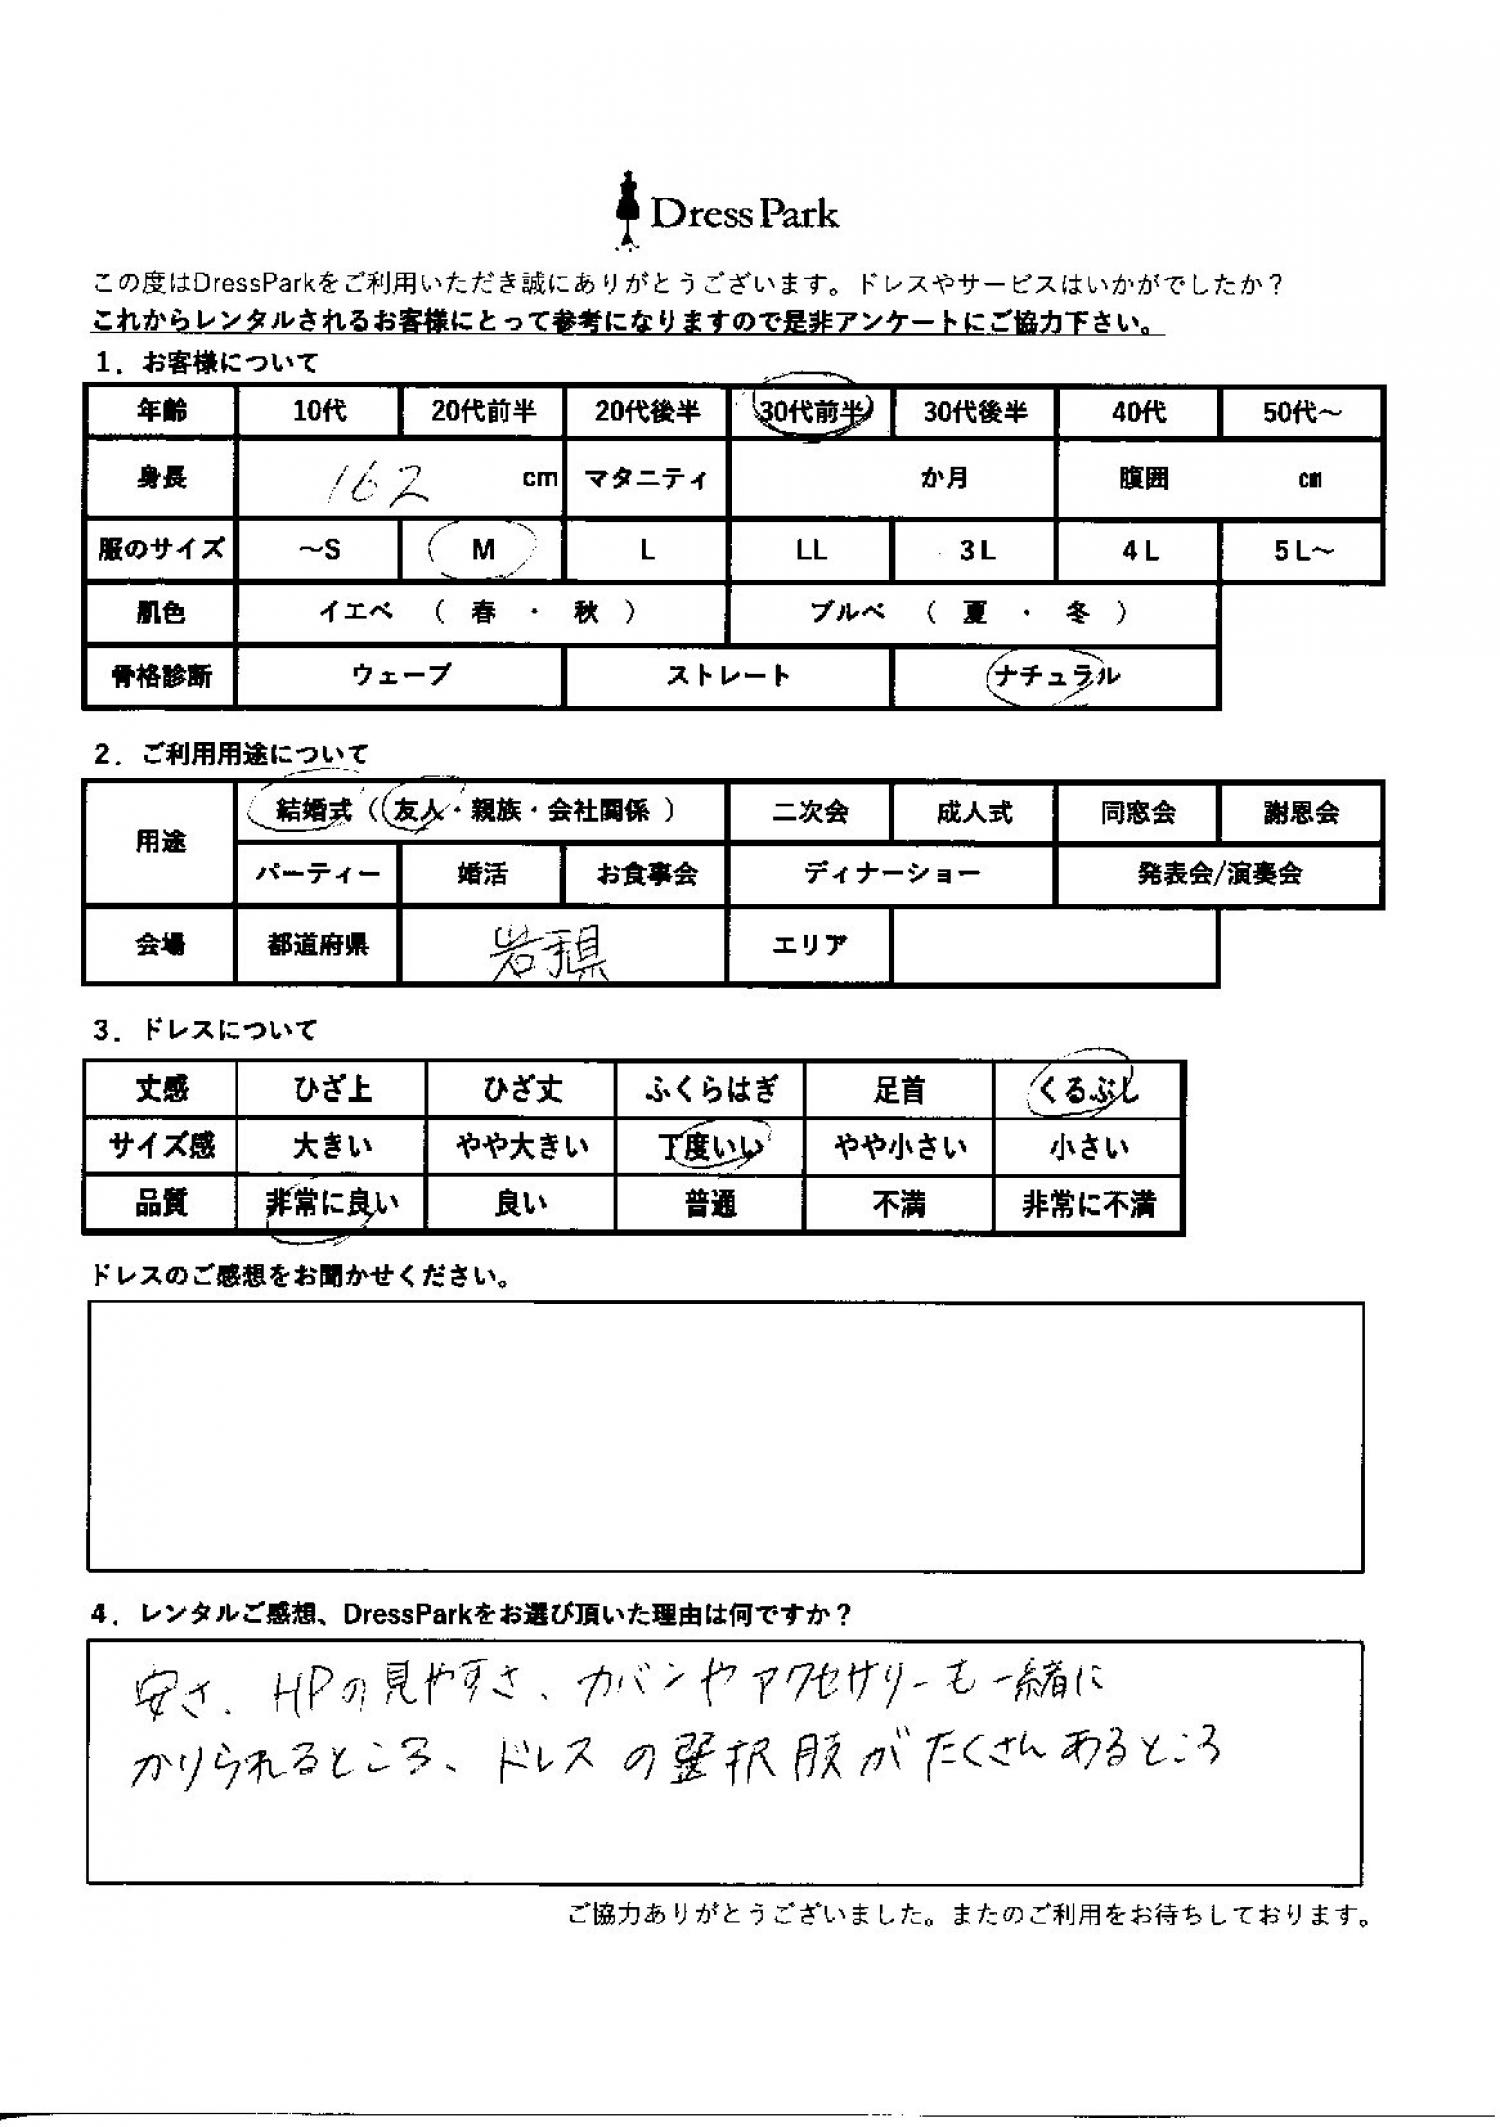 Dress Park
この度はDressParkをご利用いただき誠にありがとうございます。ドレスやサービスはいかがでしたか？
これからレンタルされるお客様にとって参考になりますので是非アンケートにご協力下さい。
1．お客様について
年齢 10代 20代前半 20代後半 30代前半 30代後半 40代 50代～
身長 162 cm マタニティ か月 腹囲 cm
服のサイズ ～S M L LL 3L 4L 5L～
肌色 イエベ （ 春 ・ 秋 ） ブルベ （ 夏 ・ 冬 ）
骨格診断 ウェーブ ストレート ナチュラル
2．ご利用用途について
用途 結婚式（友人・親族・会社関係） 二次会 成人式 同窓会 謝恩会
パーティー 婚活 お食事会 ディナーショー 発表会/演奏会
会場 都道府県 岩手県 エリア
3．ドレスについて
丈感 ひざ上 ひざ丈 ふくらはぎ 足首 くるぶし
サイズ感 大きい やや大きい 丁度いい やや小さい 小さい
品質 非常に良い 良い 普通 不満 非常に不満
ドレスのご感想をお聞かせください。
4．レンタルご感想、DressParkをお選び頂いた理由は何ですか？
安さ、HPの見やすさ、カバンやアクセサリーも一緒に
かりられるところ、ドレスの選択肢がたくさんあるところ
ご協力ありがとうございました。またのご利用をお待ちしております。